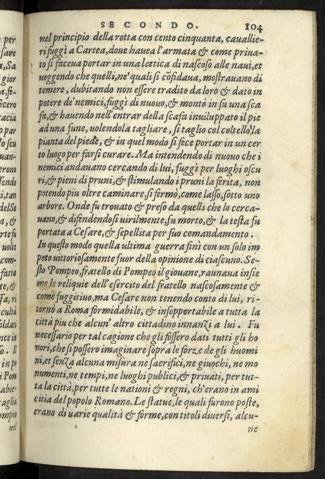 SECONDO. 104
nel principio della rotta con cento cinquanta, cavallie-
ri fuggì a Cartea, doue hauea l'armata & come priua-
to si faceua portar in una lettica di nascoso alle naui, et
ueggendo che quelli, ne'quali s'cõfidaua, mostrauano di
temere, dubitando non essere tradito da loro & dato in
potere de'nemici, fuggì di nuouo, & montò in su una sca
fa, & hauendo nell'entrar della scafa inuiluppato il pie
ad una fune, uolendola tagliare, si taglio col coltello la
pianta del piede, & in quel modo si fece portar in un cer
to luogo per farsi curare. Ma intendendo di nuouo che i
nemici andauano cercando di lui, fuggì per luoghi oscu
ri, & pieni di pruni, & stimulando i pruni la ferita, non
potendo piu oltre caminare, si firmò, come lasso, sotto uno
arbore. Onde fu trouato & preso da quelli che lo cerca-
uano, & difendendosi uirilmente, fu morto, & la testa fu
portata a Cesare, & sepellita per suo commandamento.
In questo modo quella ultima guerra finì con un solo im
peto uittoriosamente fuor della opinione di ciascuno. Se-
sto Pompeo, fratello di Pompeo il giouane, raunaua insie
me le reliquie dell'esercito del fratello nascosamente &
come fuggitiuo, ma Cesare non tenendo conto di lui, ri-
tornò a Roma formidabile, & insopportabile a tutta la
città piu che alcun'altro cittadino innanzi a lui. Fu
necessario per tal cagione che gli fissero dati tutti gli ho
nori, che si possero imaginare sopra le forze de gli huomi
ni, et senza alcuna misura ne sacrifici, ne giuochi, ne mo
numenti, ne tempi, ne luoghi publici, & priuati, per tut-
ta la città, per tutte le nationi & regni, ch'erano in ami
citia del popolo Romano. Le statue, le quali furono poste,
erano di uarie qualità & forme, con titoli diuersi, alcu-
ne